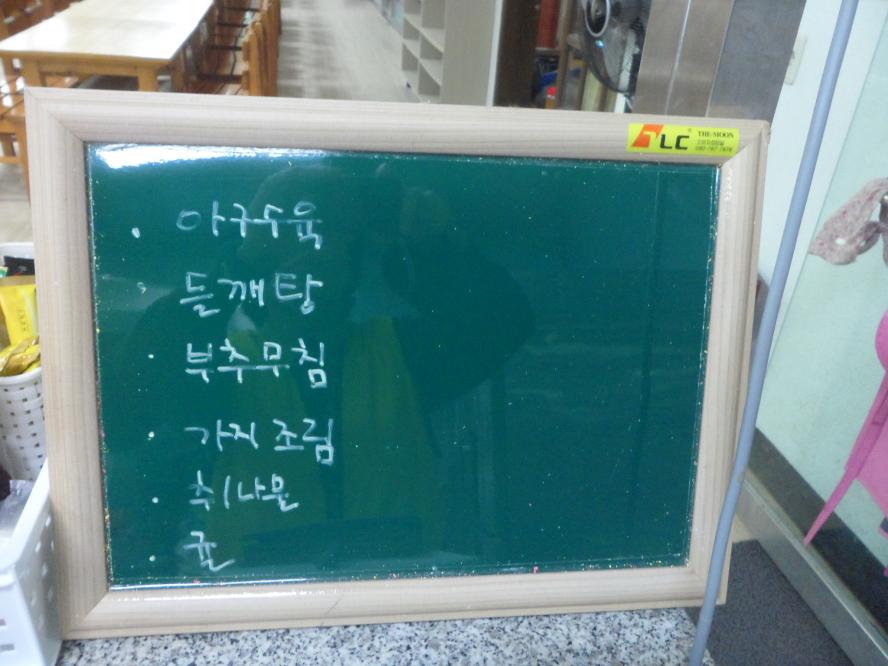 LC THE-MOON
· 아구수육
· 들깨탕
· 부추무침
· 가지조림
· 취나물
· 귤